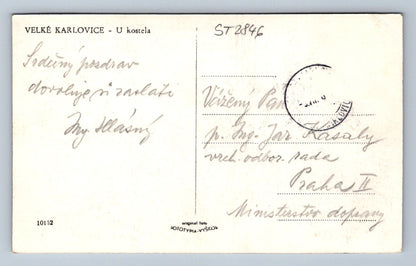 VELKÉ KARLOVICE - U kostela
ST2846
Srdečný pozdrav
dovoluje si zaslati
Ing.
Vážený Pan
p. Ing. Jar. Kasaly
vrch. odbor. rada
Praha II
Ministerstvo dopravy
10112
original foto